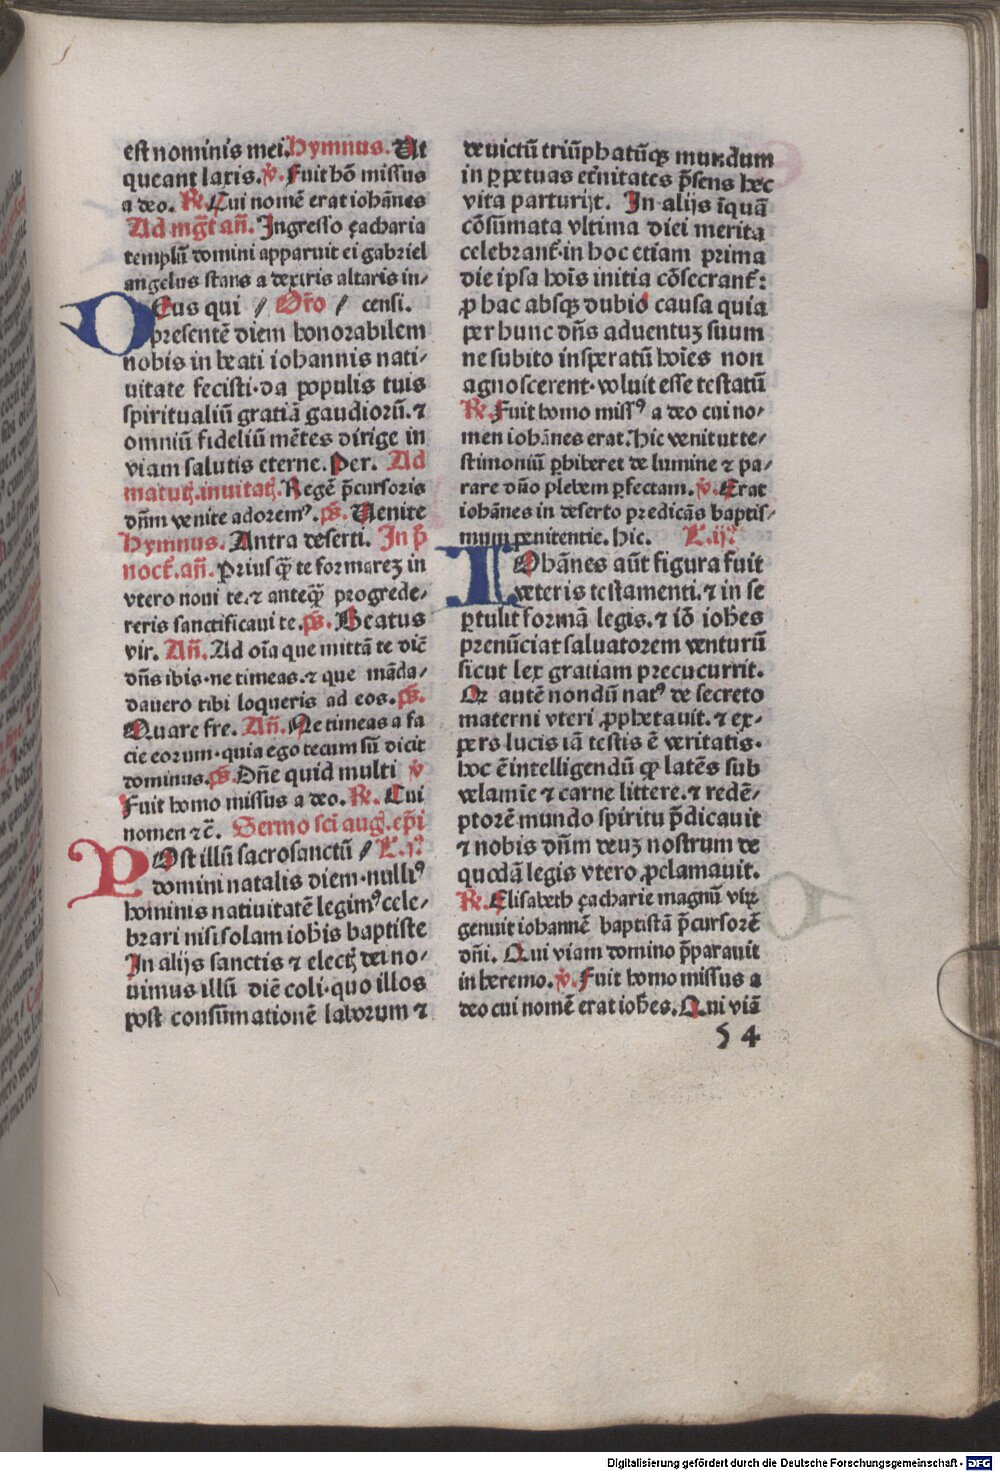 est nominis mei. Hymnus. Ut
queant laxis. ℣. Fuit hõ missus
a deo. ℞. Cui nomẽ erat iohãnes
Ad mgͣt añ. Ingresso çacharia
templũ domini apparuit ei gabriel
angelus stans a dextris altaris in-
DEus qui // Orõ / censi.
presentẽ diem honorabilem
nobis in beati iohannis nati-
uitate fecisti·da populis tuis
spiritualiũ gratiã gaudiorũ.⁊
omniũ fideliũ mẽtes dirige in
viam salutis eterne. Per. Ad
matutꝭ.inuitatꝭ. Regẽ p̃cursoris
dñm venite adoremꝰ. ps̃. Venite
Hymnus. Antra deserti. In p̃
noct̃.añ. Priusq̃ te formarez in
vtero noui te.⁊ anteq̃ progrede-
reris sanctificaui te. ps̃. Beatus
vir. Añ. Ad oĩa que mittã te dic̃
dñs ibis·ne timeas.⁊ que mãda-
dauero tibi loqueris ad eos. ps̃.
Quare fre. Añ. Ne timeas a fa
cie eorum·quia ego tecum sũ dicit
dominus. ps̃. Dñe quid multi ℣
Fuit homo missus a deo. ℞. Cui
nomen ⁊c̃. Sermo sci augꝭ.ep̃i
POst illũ sacrosanctũ // L.j.ͣ
domini natalis diem·nulliꝰ
hominis natiuitatẽ legimꝰ cele-
brari nisi solam ioh̃is baptiste
In alijs sanctis ⁊ electꝭ dei no-
uimus illũ diẽ coli·quo illos
post consũmationẽ laborum ⁊
deuictũ triũphatũqꝫ mundum
in ꝑpetuas et̃nitates p̃sens hec
vita parturijt. In alijs ĩquã
cõsũmata vltima diei merita
celebrant̃·in hoc etiam prima
die ipsa hoĩs initia cõsecrant̃:
ꝓ hac absqꝫ dubio causa quia
per hunc dñs aduentuꝫ suum
ne subito insperatũ hoĩes non
agnoscerent·voluit esse testatũ
℞. Fuit homo missꝰ a deo cui no-
men iohãnes erat. Hic venit ut te-
stimoniũ ꝑhiberet de lumine ⁊ pa-
rare dño plebem ꝑfectam. ℣. Erat
iohãnes in deserto predicãs baptis-
mum penitentie. Hic. L.ij.ͣ
IOhãnes aũt figura fuit
veteris testamenti.⁊ in se
ꝑtulit formã legis.⁊ iõ ioh̃es
prenũciat saluatorem venturũ
sicut lex gratiam precucurrit.
Qr autẽ nondũ natꝰ de secreto
materni vteri ꝓphetauit.⁊ ex-
pers lucis iã testis ẽ veritatis·
hoc ẽ intelligendũ qꝫ latẽs sub
velamĩe ⁊ carne littere.⁊ redẽ-
ptorẽ mundo spiritu p̃dicauit
⁊ nobis dñm deuꝫ nostrum de
quodã legis vtero ꝓclamauit.
℞. Elisabeth çacharie magnũ virꝫ
genuit iohannẽ baptistã p̃cursorẽ
dñi. Qui viam domino p̃parauit
in heremo. ℣. Fuit homo missus a
deo cui nomẽ erat ioh̃es. Qui viã
54
Digitalisierung gefördert durch die Deutsche Forschungsgemeinschaft - DFG